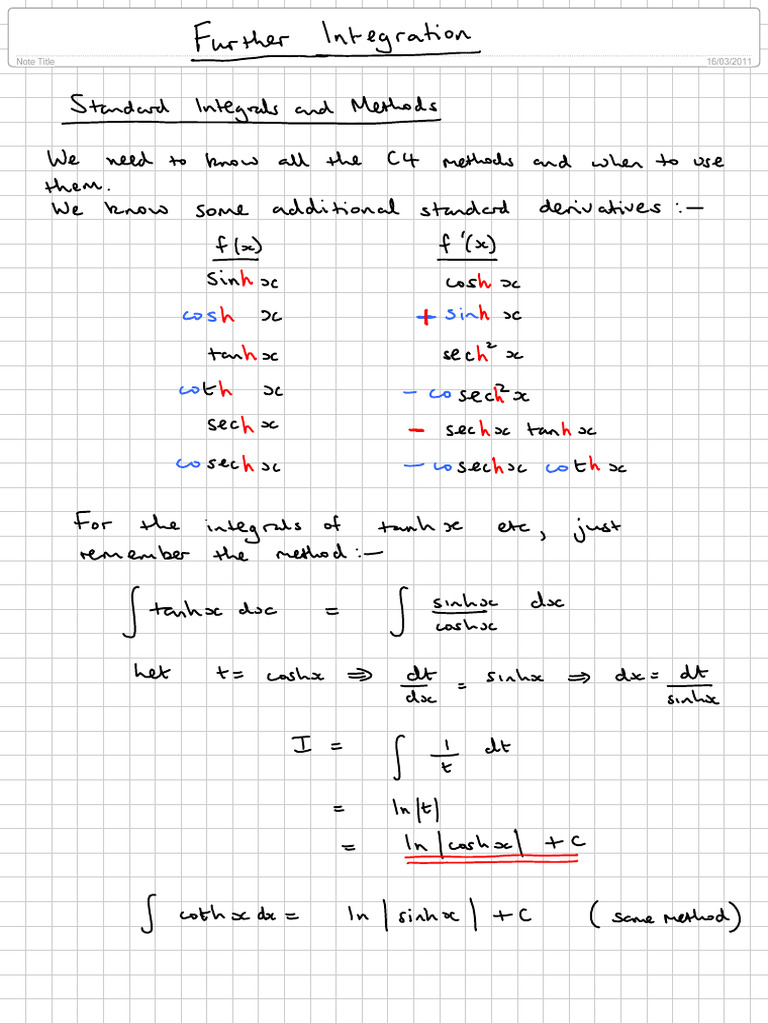 Further Integration
Note Title
16/03/2011
Standard Integrals and Methods
We need to know all the C4 methods and when to use
them.
We know some additional standard derivatives :-
f(x) f'(x)
sinh x cosh x
cosh x + sinh x
tanh x sech² x
coth x - cosech² x
sech x - sech x tanh x
cosech x - cosech x coth x
For the integrals of tanh x etc, just
remember the method :-
∫ tanh x dx = ∫ sinh x / cosh x dx
Let t = cosh x ⇒ dt/dx = sinh x ⇒ dx = dt/sinh x
I = ∫ 1/t dt
= ln|t|
= ln|cosh x| + C
∫ coth x dx = ln|sinh x| + C (same method)